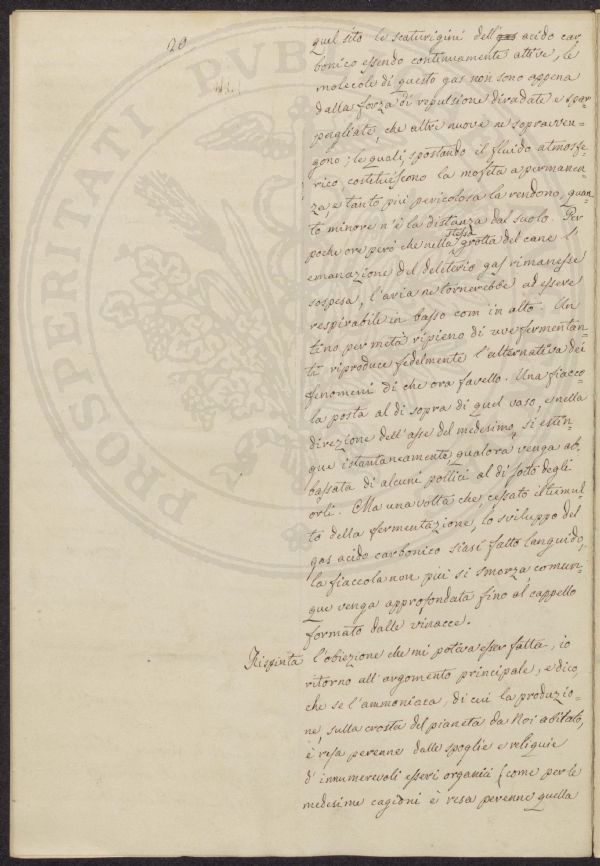 20
quel sito le scaturigini dell' acido car-
bonico essendo continuamente attive, le
molecole di questo gas non sono appena
dalla forza di repulsione diradate e spar-
pagliate, che altre nuove ne sopravven-
gono; le quali, spostando il fluido atmosfe-
rico, costituiscono la mofeta a permanen-
za, e tanto più pericolosa la rendono, quan-
to minore n'è la distanza dal suolo. Per
poche ore però che nella stessa grotta del cane l'
emanazione del deliterio gas rimanesse
sospesa, l'aria ne tornerebbe ad essere
respirabile in basso com in alto. Un
tino per metà ripieno di uve fermentan-
ti riproduce fedelmente l'alternativa dei
fenomeni di che ora favello. Una fiacco-
la posta al di sopra di quel vaso, e nella
direzione dell'asse del medesimo, si estin-
gue istantaneamente, qualora venga ab-
bassata di alcuni pollici al di sotto degli
orli. Ma una volta che, cessato il tumul-
to della fermentazione, lo sviluppo del
gas acido carbonico siasi fatto languido,
la fiaccola non più si smorza, comun-
que venga approfondata fino al cappello
formato dalle vinacce.
Rispinta l'obiezione che mi poteva esser fatta, io
ritorno all'argomento principale, e dico,
che se l'ammoniaca, di cui la produzio-
ne, sulla crosta del pianeta da Noi abitato,
è resa perenne dalle spoglie e reliquie
d'innumerevoli esseri organici (come per le
medesime cagioni è resa perenne quella
PROSPERITATI PVBL